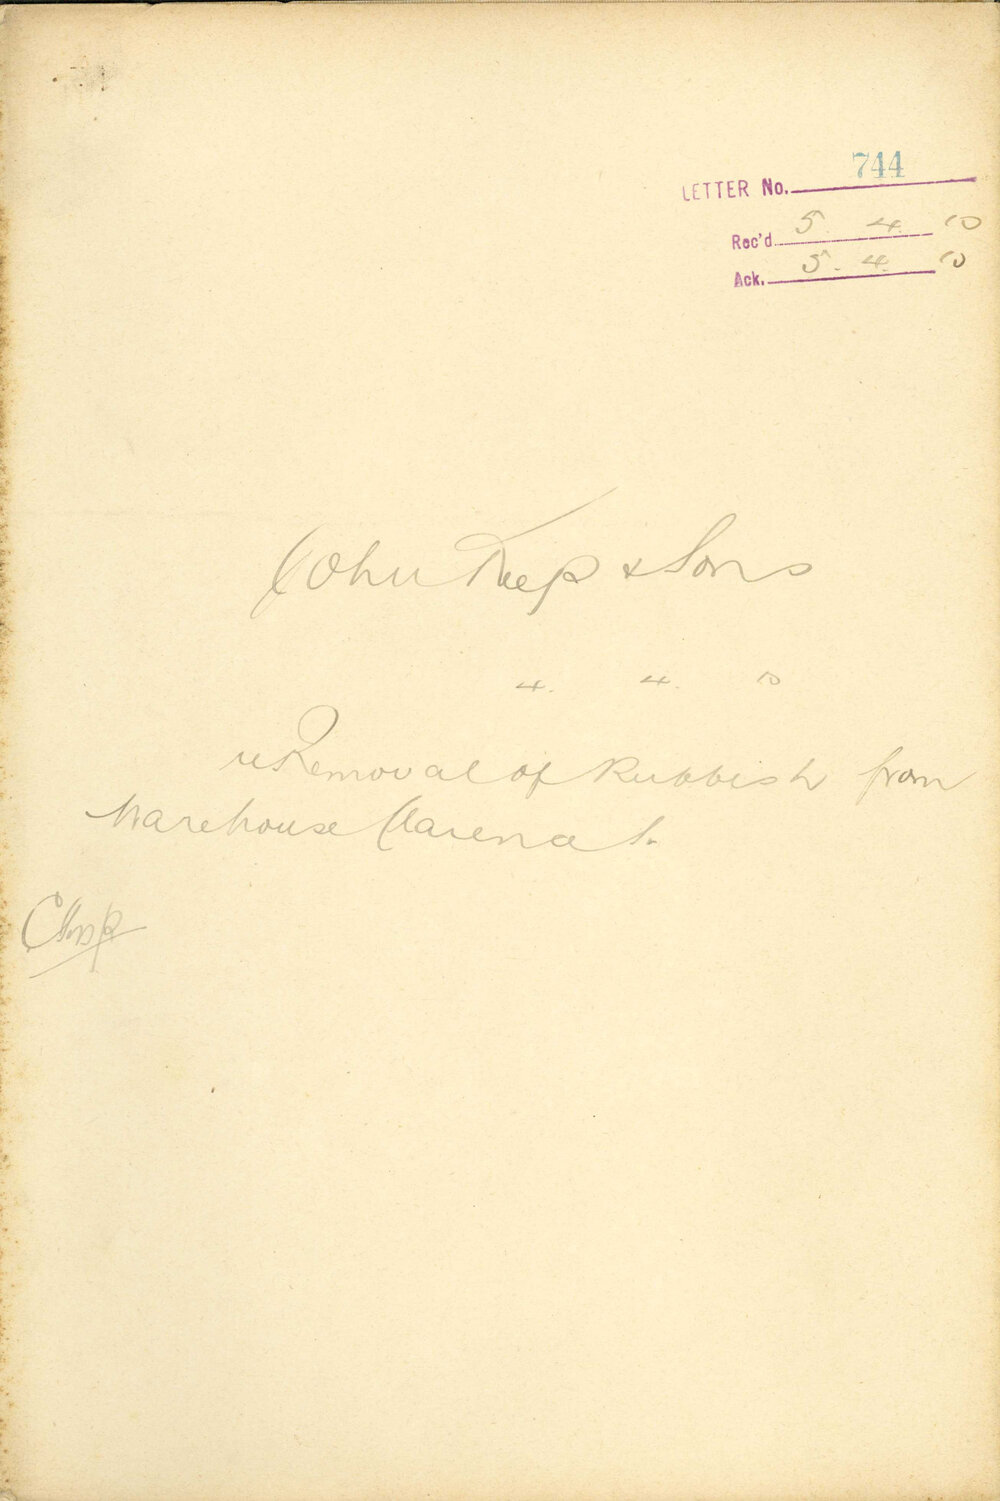 LETTER No. 744
Rec'd 5. 4. 10
Ack. 5. 4. 10
John Keep & Sons
4. 4. 10
re Removal of Rubbish from
Warehouse Clarence St